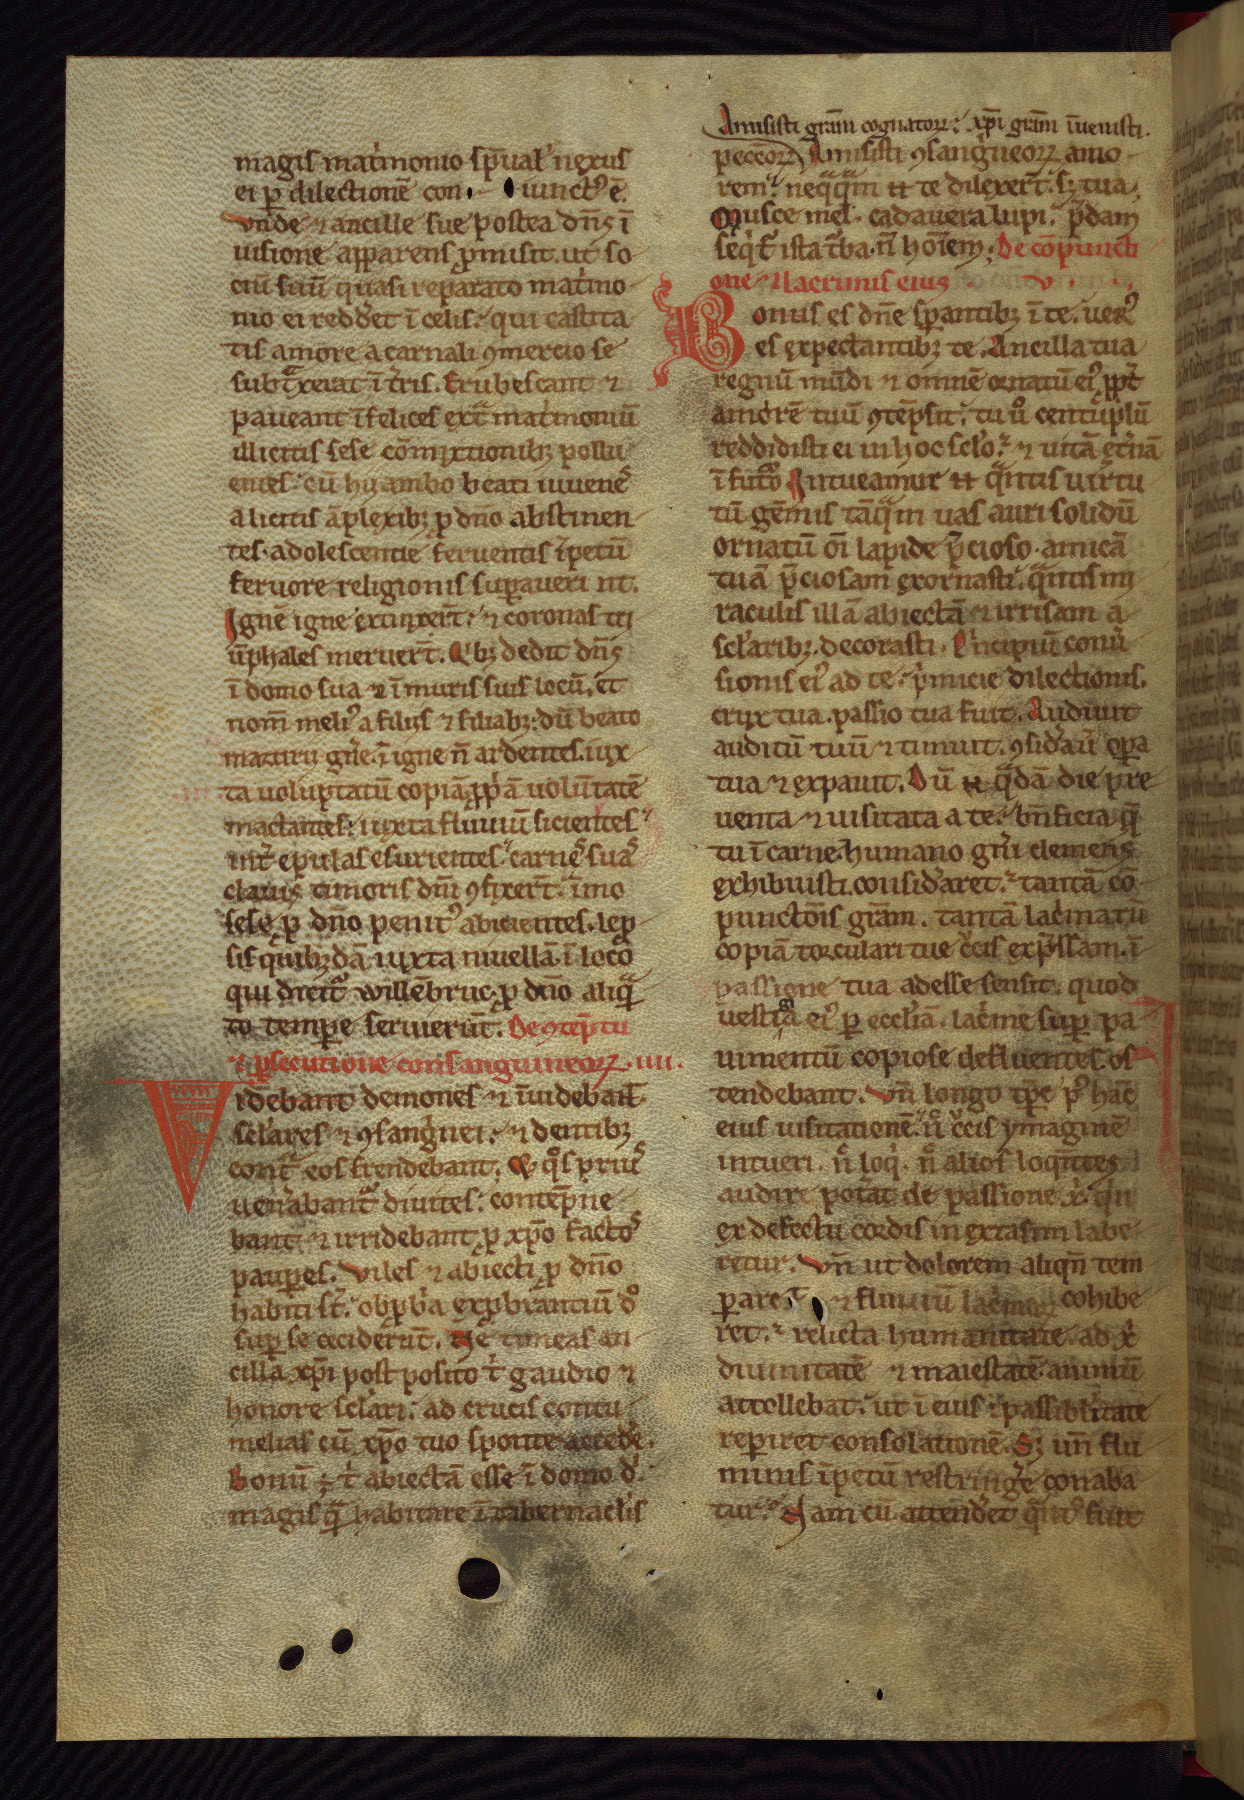 magis mat͛imonio sp̄ualˀ nexus
ei ꝑ dilectionē con iunctꝰ ē.
Vnde ⁊ ancille sue postea dn̄s ī
uisione apparens ꝓmisit. ut so
ciū suū quasi reparato mat͛imo
nio ei redd͛et ī celis. qui castita
tis amore a carnali ꝯmercio se
subtͣxerat ī t͛ris. Erubescant ⁊
paueant īfelices extͣ mat͛imoniū
illicitis sese cōmixtionibꝫ pollu
entes. cū hij ambo beati iuuenes
a licitis āplexibꝫ ꝑ dn̄o abstinen
tes. adolescentie feruentis īpetū
feruore religionis suꝑauerint.
Ignē igne extinxer̄t. ⁊ coronas tri
ūphales meruer̄t. Qͥbꝫ dedit dn̄s
ī domo sua ⁊ ī muris suis locū. et
nom̄ meliꝰ a filijs ⁊ filiabꝫ. dū beato
martirij gn͛e. ī igne n̄ ardentes. iux
ta uoluptatū copiā ꝓpͥā uolūtatē
mactantes. iuxta fluuiū sicientes
int͛ epulas esurientes. carnes suas
clauis timoris dn̄i ꝯfixer̄t. īmo
sese ꝑ dn̄o penitꝰ abicientes. lep
sis quibꝫdā iuxta niuellā. ī loco
qui dicitᷣ willēbruc ꝑ dn̄o aliqͣ
to tempore seruierūt. De ꝯtēptu
⁊ ꝑsecutione consanguineoꝝ .iiii.
Videbant demones ⁊ īuidebant.
sclares ⁊ ꝯsangͥnei. ⁊ dentibꝫ
contͣ eos frendebant. Et qͦs priꝰ
uen͛abantᷣ diuites. contēpne
bant ⁊ irridebant ꝑ xp̄o factos
pauꝑes. Viles ⁊ abiecti ꝑ dn̄o
habiti st̄. obꝓbͥa exꝓbrantiū
suꝑ se ceciderūt. Ne timeas an
cilla xp̄i post posito t͛ gaudio ⁊
honore sclari. ad crucis contu
melias cū xp̄o tuo sponte acced͛e.
Bonū ÷ t͛ abiectā esse ī domo d͛i.
magis qͣ habitare ī tabernaclis
Amisisti grām cognatoꝝ. xp̄i grām īuenisti.
peccōꝝ Amisisti ꝯsangͥneoꝝ amo
rem. neqͣqͣm te dilexer̄t. sꝫ tua
Musce mel. cadauera lupi. p̄dam
seqͥtᷣ ista tᷣba. n̄ hoīem. De cōpuncti
one ⁊ lacrimis eius v.
Bonus es dn̄e sꝑantibꝫ ī te. uerꝰ
es expectantibꝫ te. Ancilla tua
regnū mūdi ⁊ omnē ornatū eiꝰ ꝓpt͛
amorē tuū ꝯtēpsit. tu uͦ centuplū
reddidisti ei in hoc sclo. ⁊ uitā et͛nā
ī futᷣo Intueamur qͣntis uirtu
tū gēmis tāqͣm uas auri solidū
ornatū oī lapide p̄cioso. amicā
tuā p̄ciosam exornasti. qͣntis mi
raculis illā abiectā ⁊ irrisam a
sclaribꝫ. decorasti. Pͥncipiū conu͛
sionis eiꝰ ad te. pͥmicie dilectionis.
crux tua. passio tua fuit. Audiuit
auditū tuū ⁊ timuit. ꝯsid͛auit oꝑa
tua ⁊ expauit. Dū qͣdā die pre
uenta ⁊ uisitata a te. bn̄ficia q̄
tu ī carne humano gn͛i clemens
exhibuisti. consid͛aret. tantā cō
punctōis grām. tantā lac͛matū
copiā torculari tue c͛cis exp̄ssam. ī
passione tua adesse sensit. quod
uestigͣa eiꝰ ꝑ eccliā. lac͛me suꝑ pa
uimentū copiose defluentes. os
tendebant. Vn̄ longo tp̄e pꝰ hāc
eius uisitationē. n̄ c͛cis ymaginē
intueri. n̄ loqͥ. n̄ alios loqn̄tes
audire pot͛at de passione x͛. qͥn
ex defectu cordis in extasim labe
retur. Vn̄ ut dolorem aliqn̄ tem
perare t ⁊ fluuiū lac͛maꝝ cohibe
ret. relicta humanitate. ad x͛
diuinitatē ⁊ maiestatē animū
attollebat. ut ī eius īpassiblitate
reperiret consolationē. Sꝫ un̄ flu
minis īpetū restring͛e conaba
tur. Nam cū attend͛et qͣntꝰ fuit